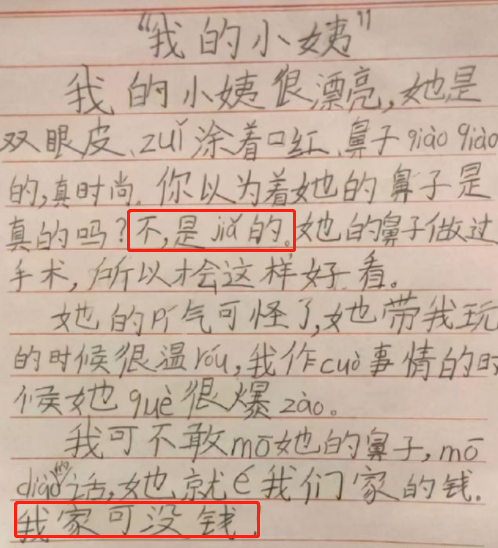 “我的小姨”
我的小姨很漂亮，她是
双眼皮、zuǐ涂着口红、鼻子qiào qiào
的，真时尚。你以为着她的鼻子是
真的吗？不，是jiǎ的。她的鼻子做过
手术，所以才会这样好看。
她的pí气可怪了，她带我玩
的时候很温róu，我作cuò事情的时
候她què很爆zào。
我可不敢mō她的鼻子，mō
diào话，她就é我们家的钱。
我家可没钱！